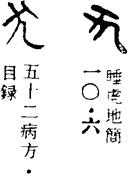 睡虎地簡
一〇·六
五十二病方·
目録